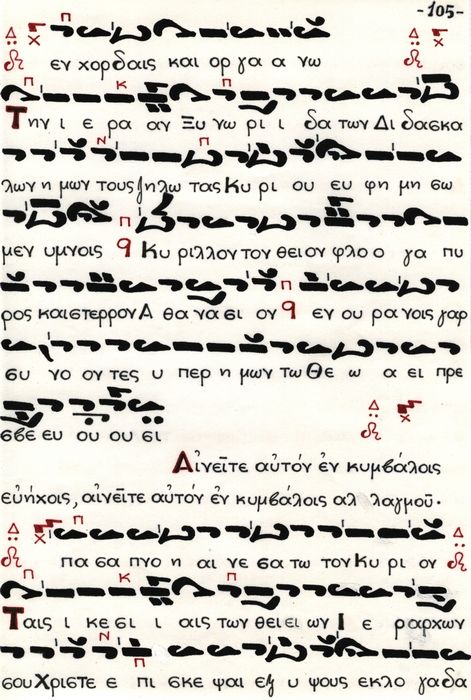 -105-
εν χορδαις και οργα α νω
Την ι ε ρα αν Ξυ νω ρι ι δα των Δι δασκα
λων η μων τους ζηλω τας Κυ ρι ου ευ φη μη σω
μεν υμνοις q Κυριλλον τον θειον φλο ο γα πυ
ρος και στερρον Α θα να σι ον q εν ου ρα νοις γαρ
συ νο ον τες υ περ η μων τω Θε ω α ει πρε
σβε ευ ου ου σι
Αἰνεῖτε αὐτόν ἐν κυμβάλοις
εὐήχοις, αἰνεῖτε αὐτόν ἐν κυμβάλοις αλ λαγμοῦ.
πα σα πνο η αι νε σα τω τον Κυ ρι ον
Ταις ι κε σι ι αις των θει ει ων Ι ε ραρχων
σου Χριστε ε πι σκε ψαι εξ υ ψους εκλο γα δα